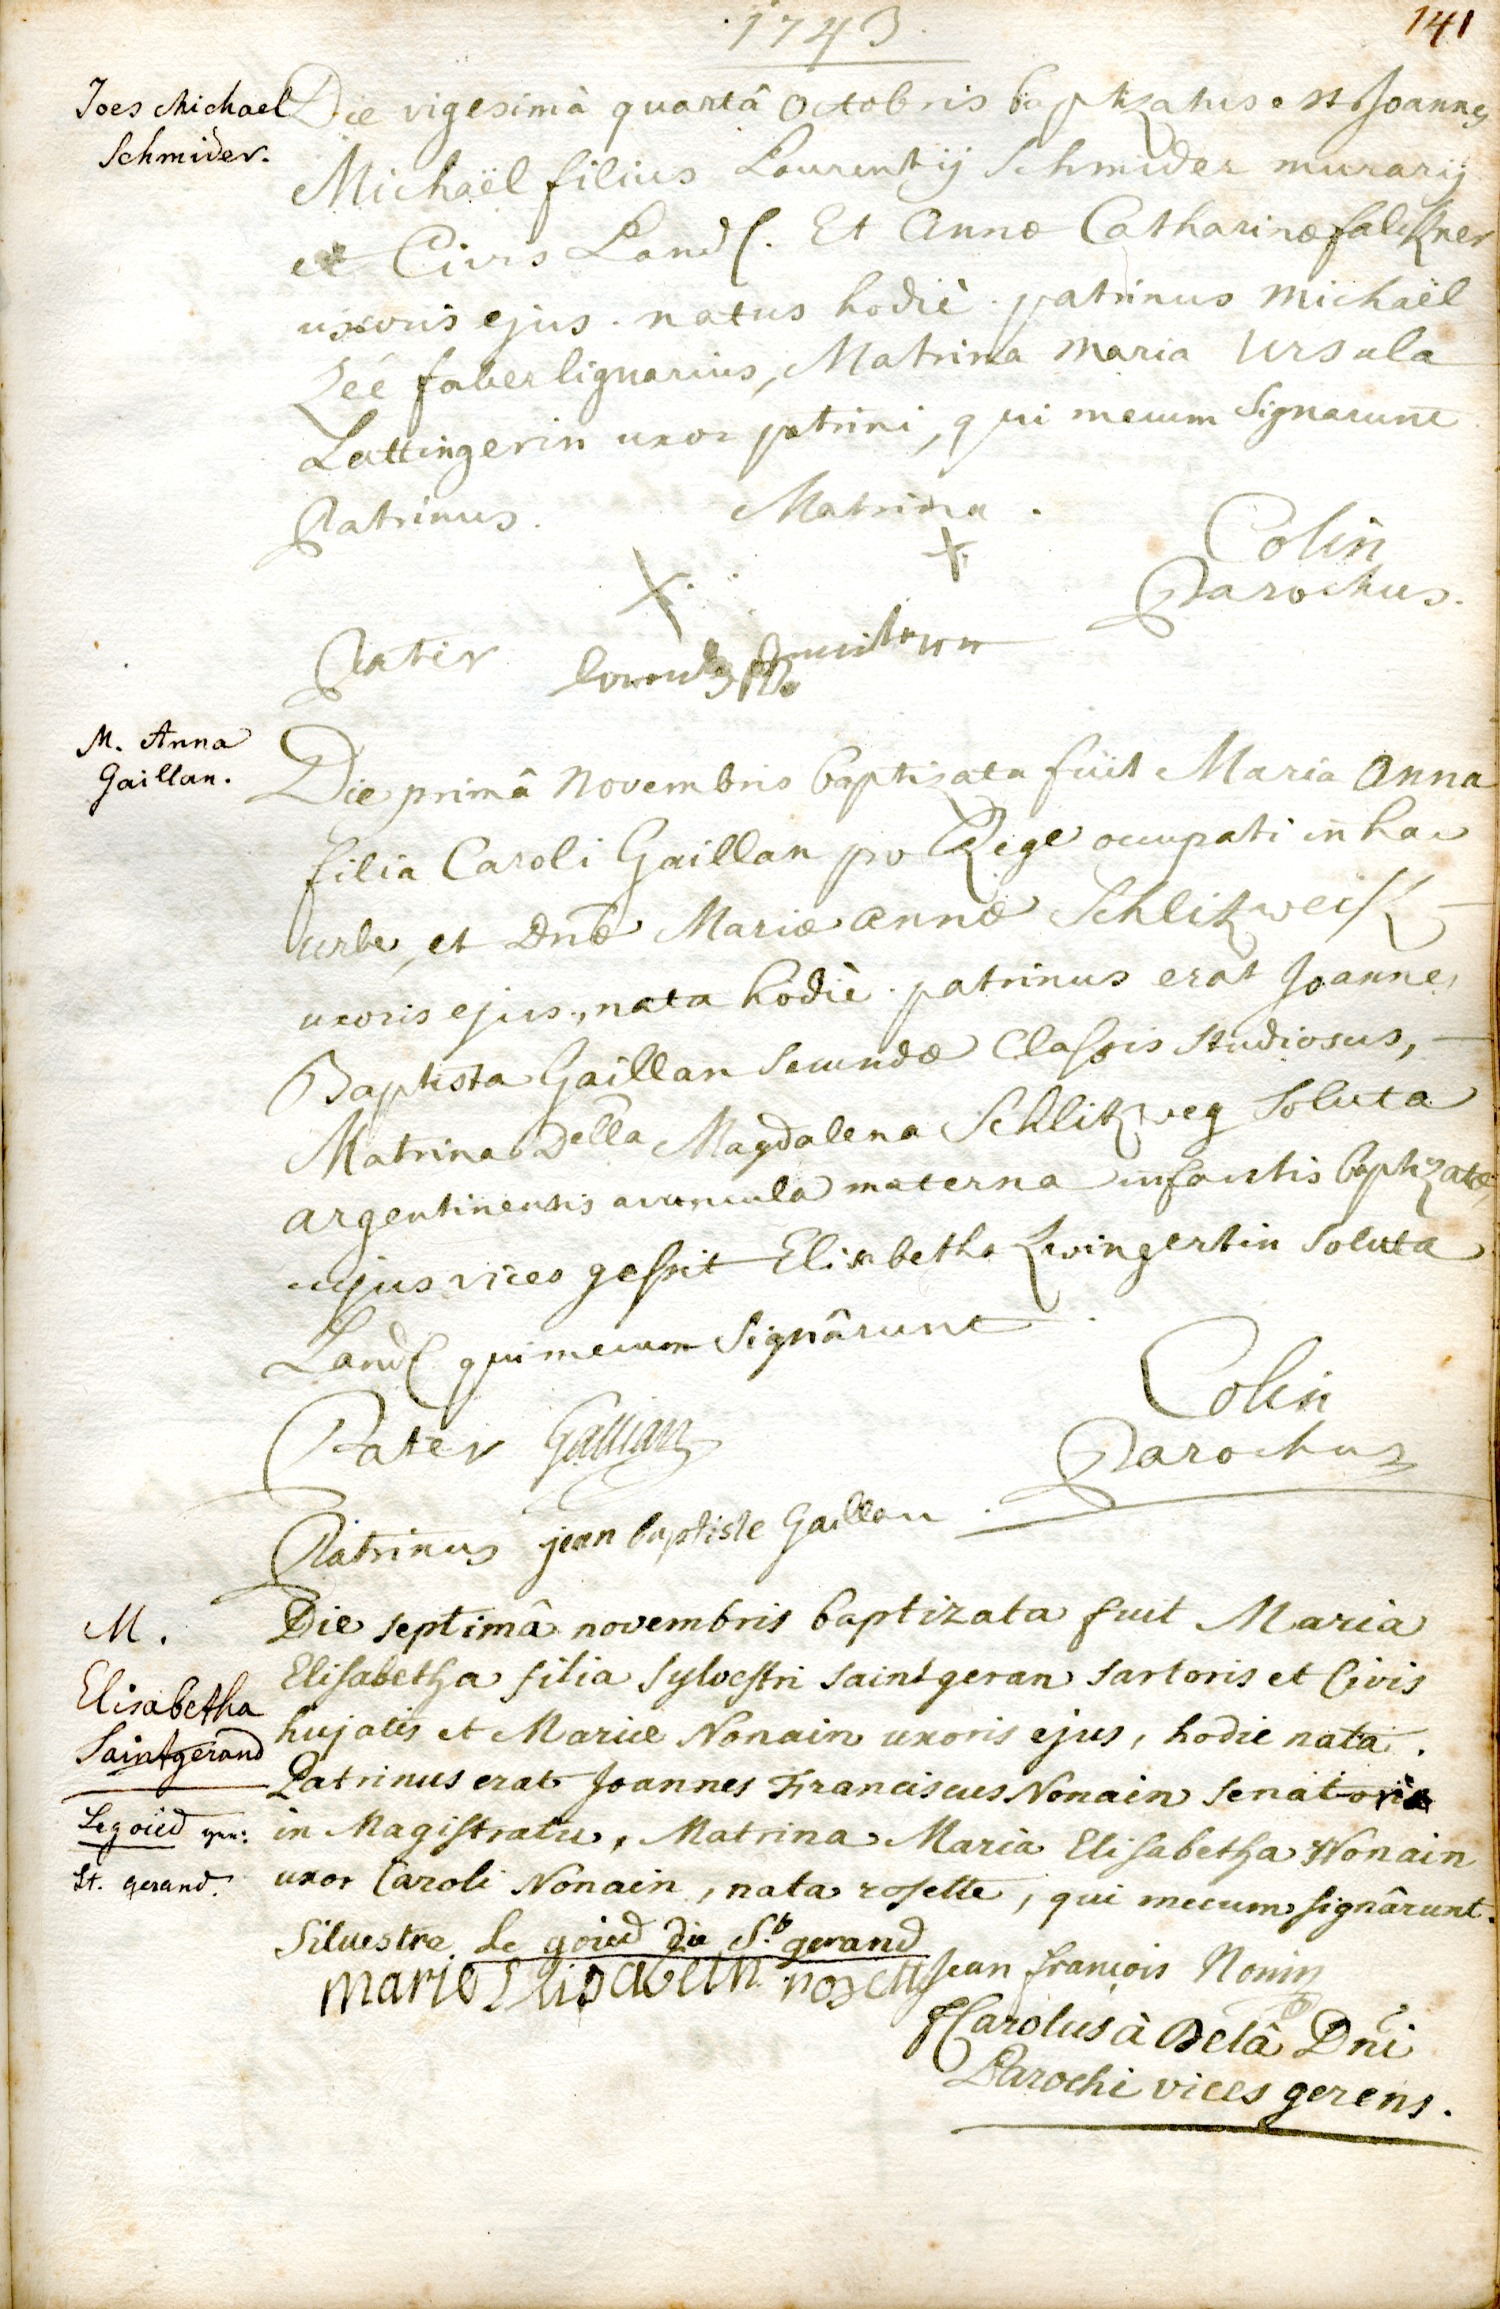 1743.
141
Joes Michael
Schmider.
Die vigesimâ quartâ Octobris baptizatus est Joannes
Michaël filius Laurentij Schmider murarij
et Civis Land. Et Annæ Catharinæ falckner
uxoris ejus. natus hodiè. patrinus Michaël
Zéé faber lignarius, Matrina Maria Ursula
Lattingerin uxor patrini, qui mecum signarunt
Patrinus. Matrina.
X. X.
Colin
Parochus.
Pater
M. Anna
Gaillan.
Die primâ Novembris baptizata fuit Maria Anna
filia Caroli Gaillan pro Rege occupati in hac
urbe, et Dnæ Mariæ Annæ Schlitzweck
uxoris ejus, nata hodiè. patrinus erat Joannes
Baptista Gaillan secundæ Classis studiosus,
Matrina Della Magdalena Schlitzweg soluta
argentinensis avuncula materna infantis baptizatæ
cujus vices gessit Elisabetha Zwingertin soluta
Land. qui mecum signârunt.
Pater Gallian
Colin
Parochus
Patrinus jean baptiste Gaillan.
M.
Elisabetha
Saintgerand
Legoied
St. gerand.
Die septimâ novembris baptizata fuit Maria
Elisabetha filia Sylvestri saintgeran sartoris et Civis
hujatis et Mariæ Nonain uxoris ejus, hodie nata.
Patrinus erat Joannes Franciscus Nonain senator
in Magistratu, Matrina Maria Elisabetha Nonain
uxor Caroli Nonain, nata rosette, qui mecum signârunt.
Siluestre Le goied die St. gerand
Marie Elisabeth rosette jean françois Nonin
F Carolus à Belâ Dni
Parochi vices gerens.